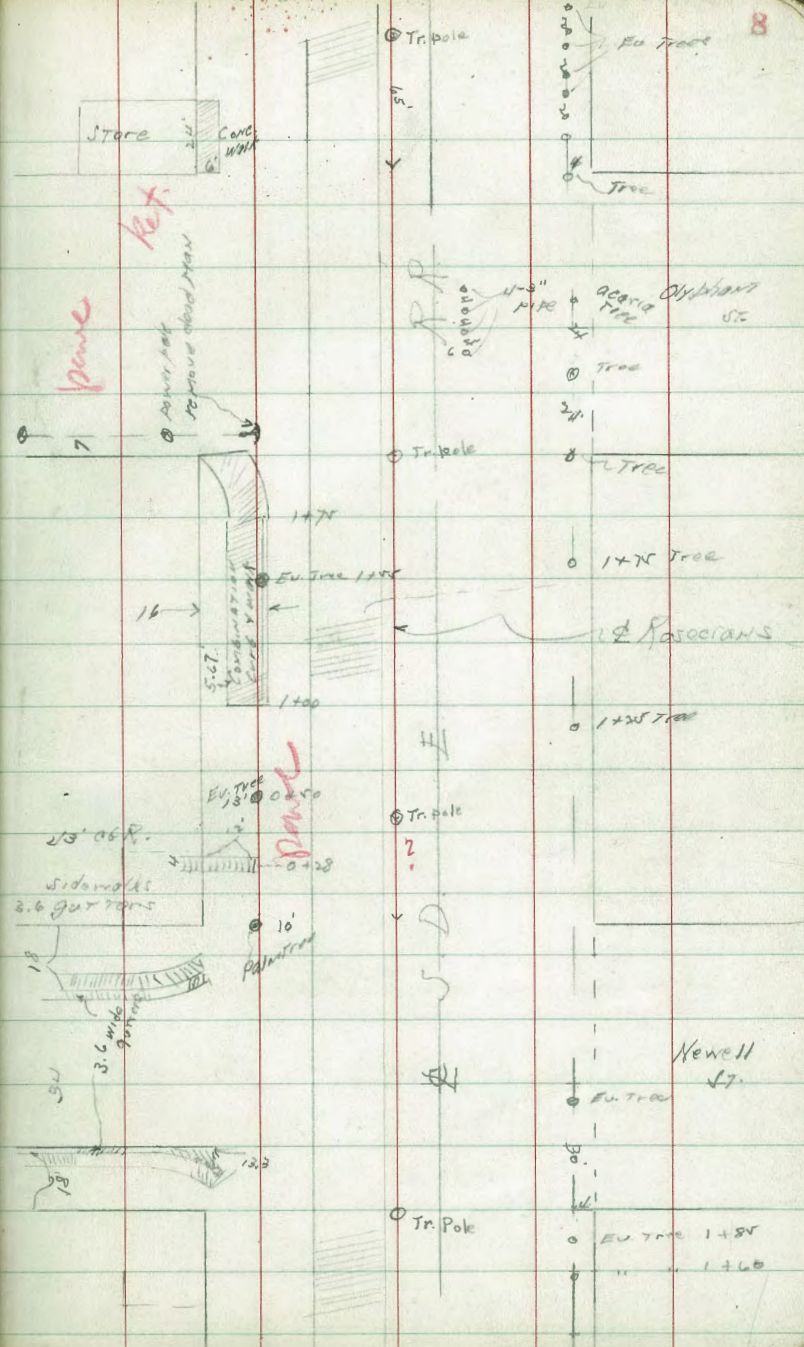 8
Tr. pole
Eu Trees
65'
Store
24'
6'
Conc.
Walk
4
Tree
Ret.
pave
power pole
remove dead man
7
R.R.
4-3"
pipe
6
acacia
Tree
Olyphant
St.
Tree
24'
Tr. pole
Tree
1+75
1+75 Tree
Eu. Tree 1+55
16
5.67'
COMBINATION
CURB & WALK
℄ Rosecrans
1+00
1+25 Tree
E
Eu. Tree
13'
0+50
pave
Tr. pole
?
2'
4
0+28
Sidewalks
3.6 gutters
10'
Palm tree
S. D.
18
3.6 wide
gutters
Newell
St.
&
Eu. Tree
30'
13.3
18
4
Tr. Pole
Eu Tree 1+85
" " 1+60